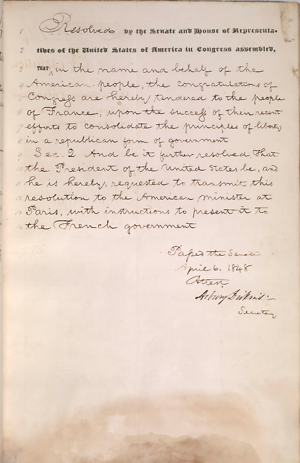 Resolved by the Senate and House of Representa-
tives of the United States of America in Congress assembled,
That, in the name and behalf of the
American people, the congratulations of
Congress are hereby tendered to the people
of France, upon the success of their recent
efforts to consolidate the principles of liberty
in a republican form of government
Sec 2 And be it further resolved That
the President of the United States be, and
he is hereby, requested to transmit this
resolution to the American minister at
Paris, with instructions to present it to
the French government
Passed the Senate
April 6. 1848
Attest
Asbury Dickins
Secretary